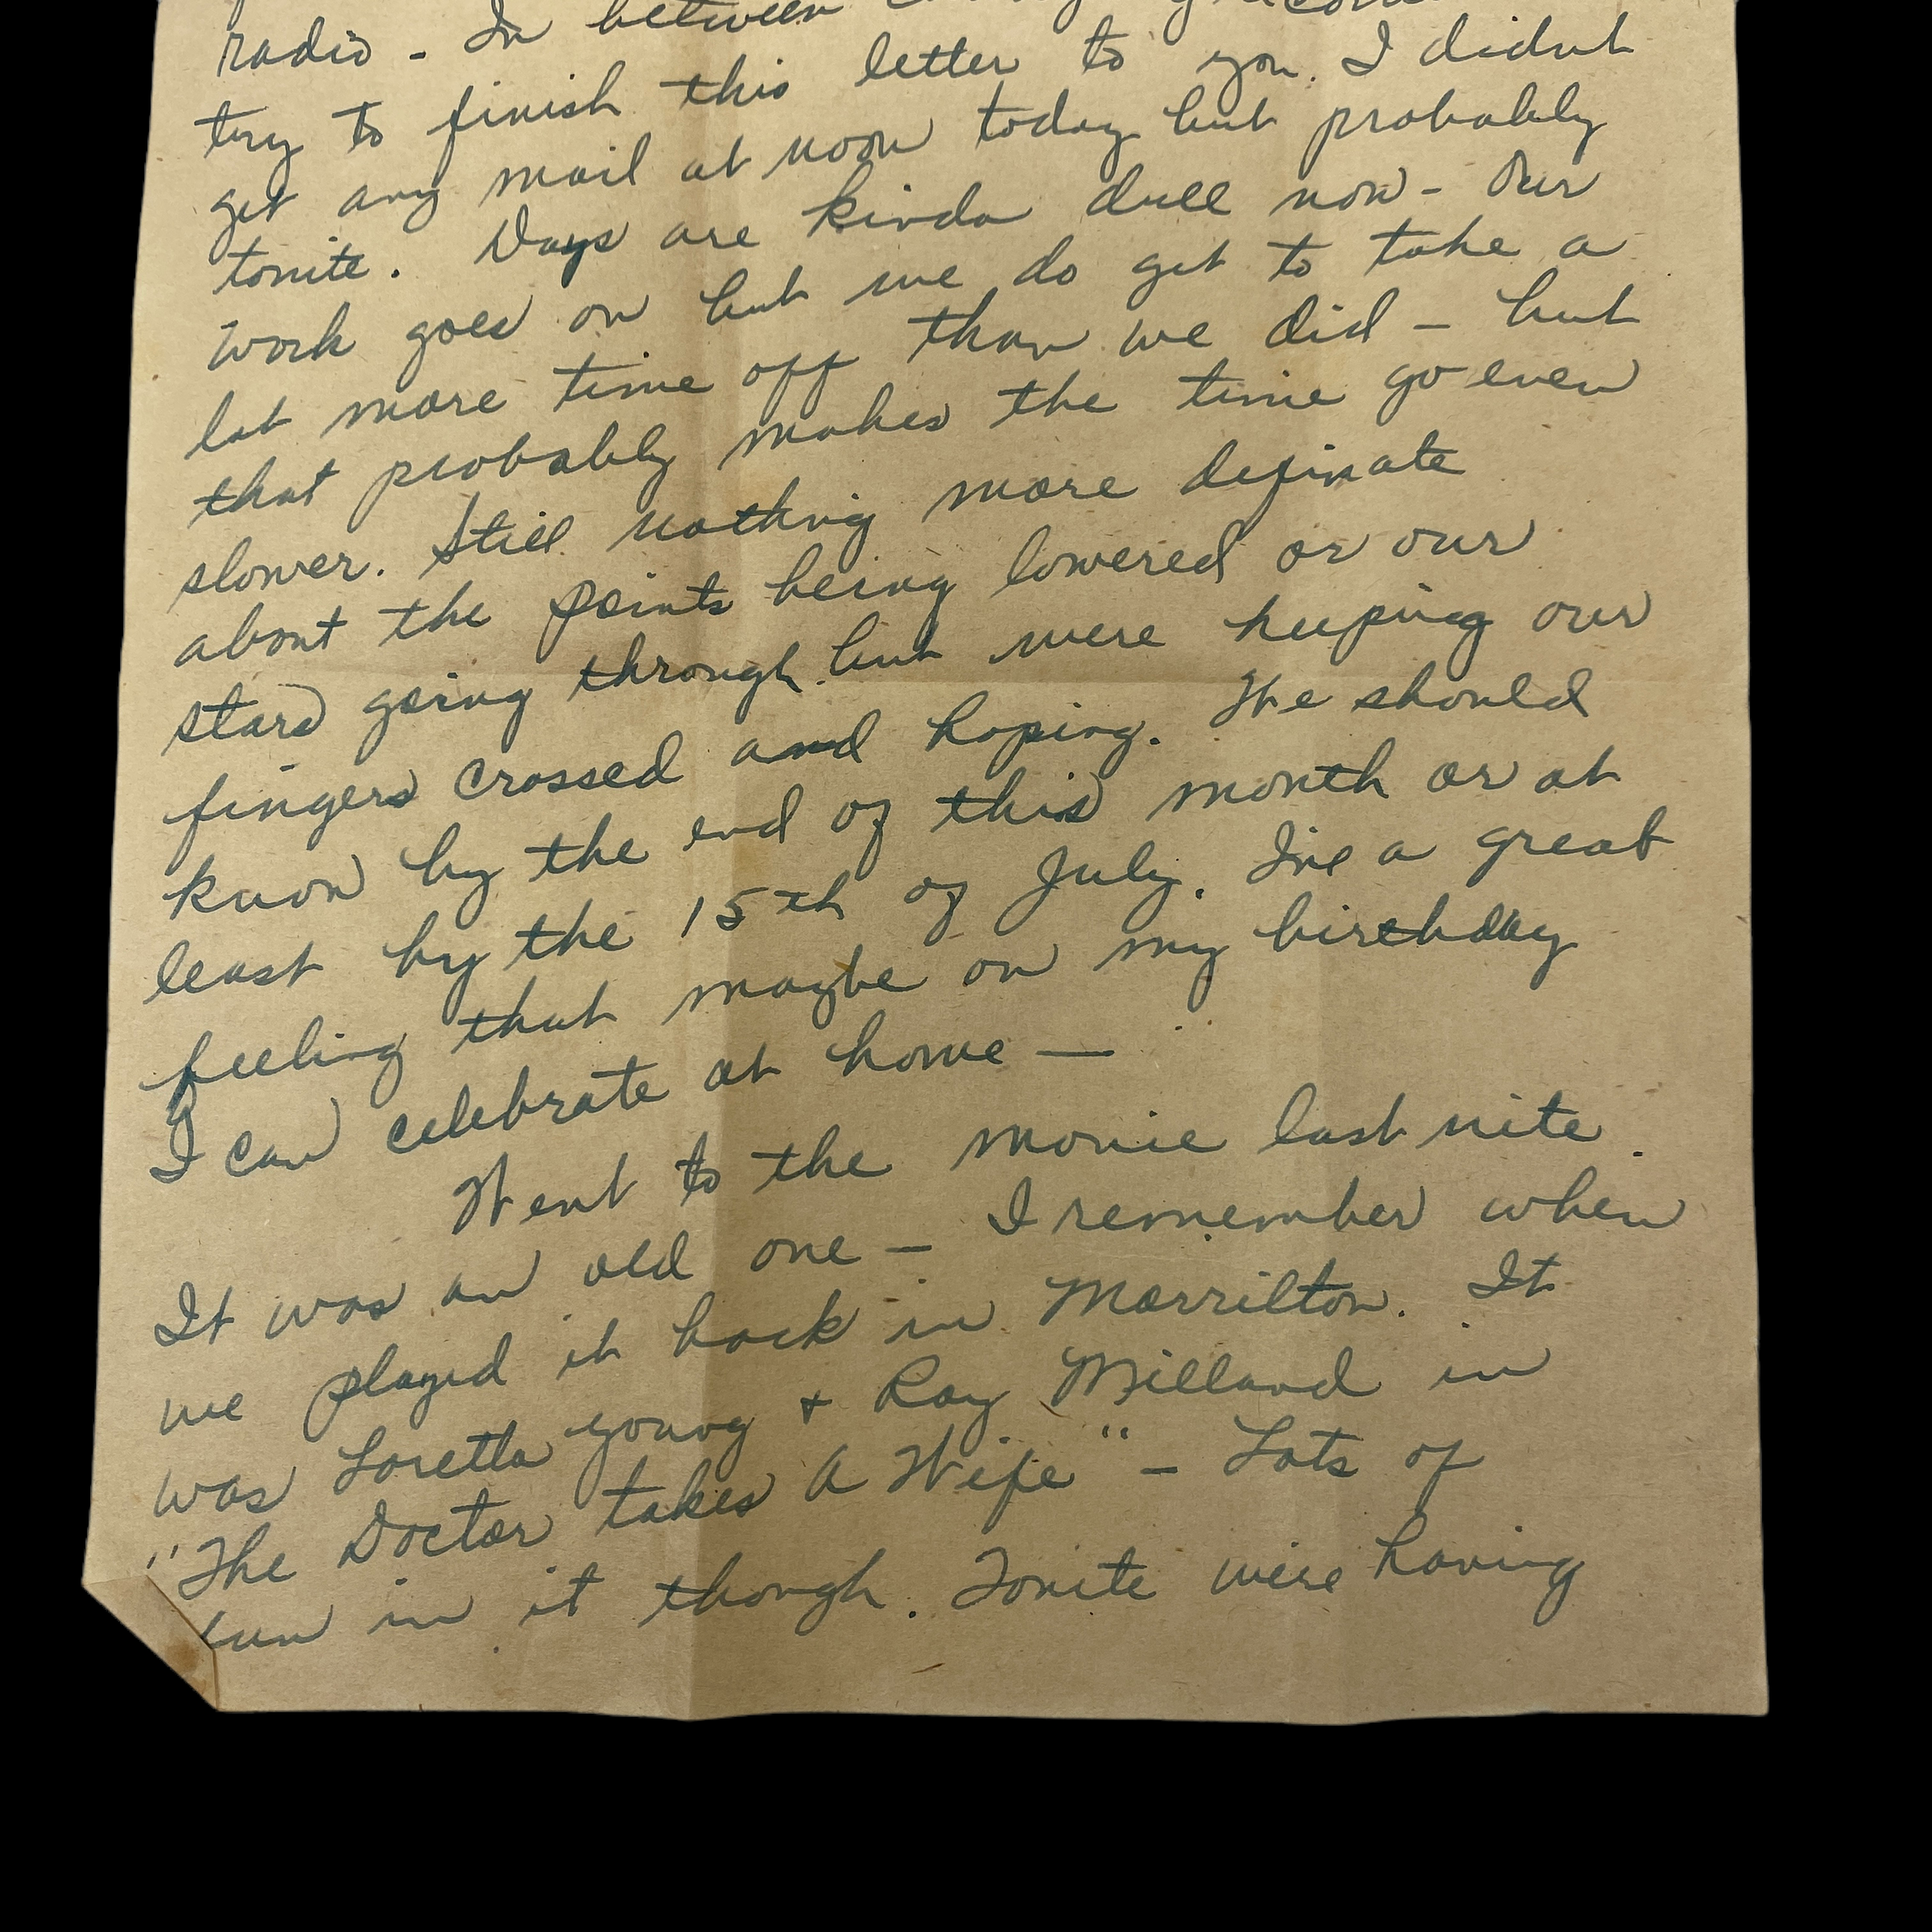 radio - In between
try to finish this letter to you. I didnt
get any mail at noon today but probably
tonite. Days are kinda dull now - Our
work goes on but we do get to take a
lot more time off than we did - but
that probably makes the time go even
slower. Still nothing more definate
about the points being lowered or our
stars going through but were keeping our
fingers crossed and hoping. We should
know by the end of this month or at
least by the 15th of July. Ive a great
feeling that maybe on my birthday
I can celebrate at home —
Went to the movie last nite.
It was an old one - I remember when
we played it back in Morrilton. It
was Loretta Young + Ray Milland in
"The Doctor takes A Wife" - Lots of
fun in it though. Tonite were having